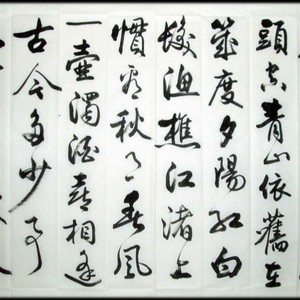 頭空青山依舊在
幾度夕陽紅白
髮渔樵江渚上
慣看秋月春風
一壺濁酒喜相逢
古今多少事